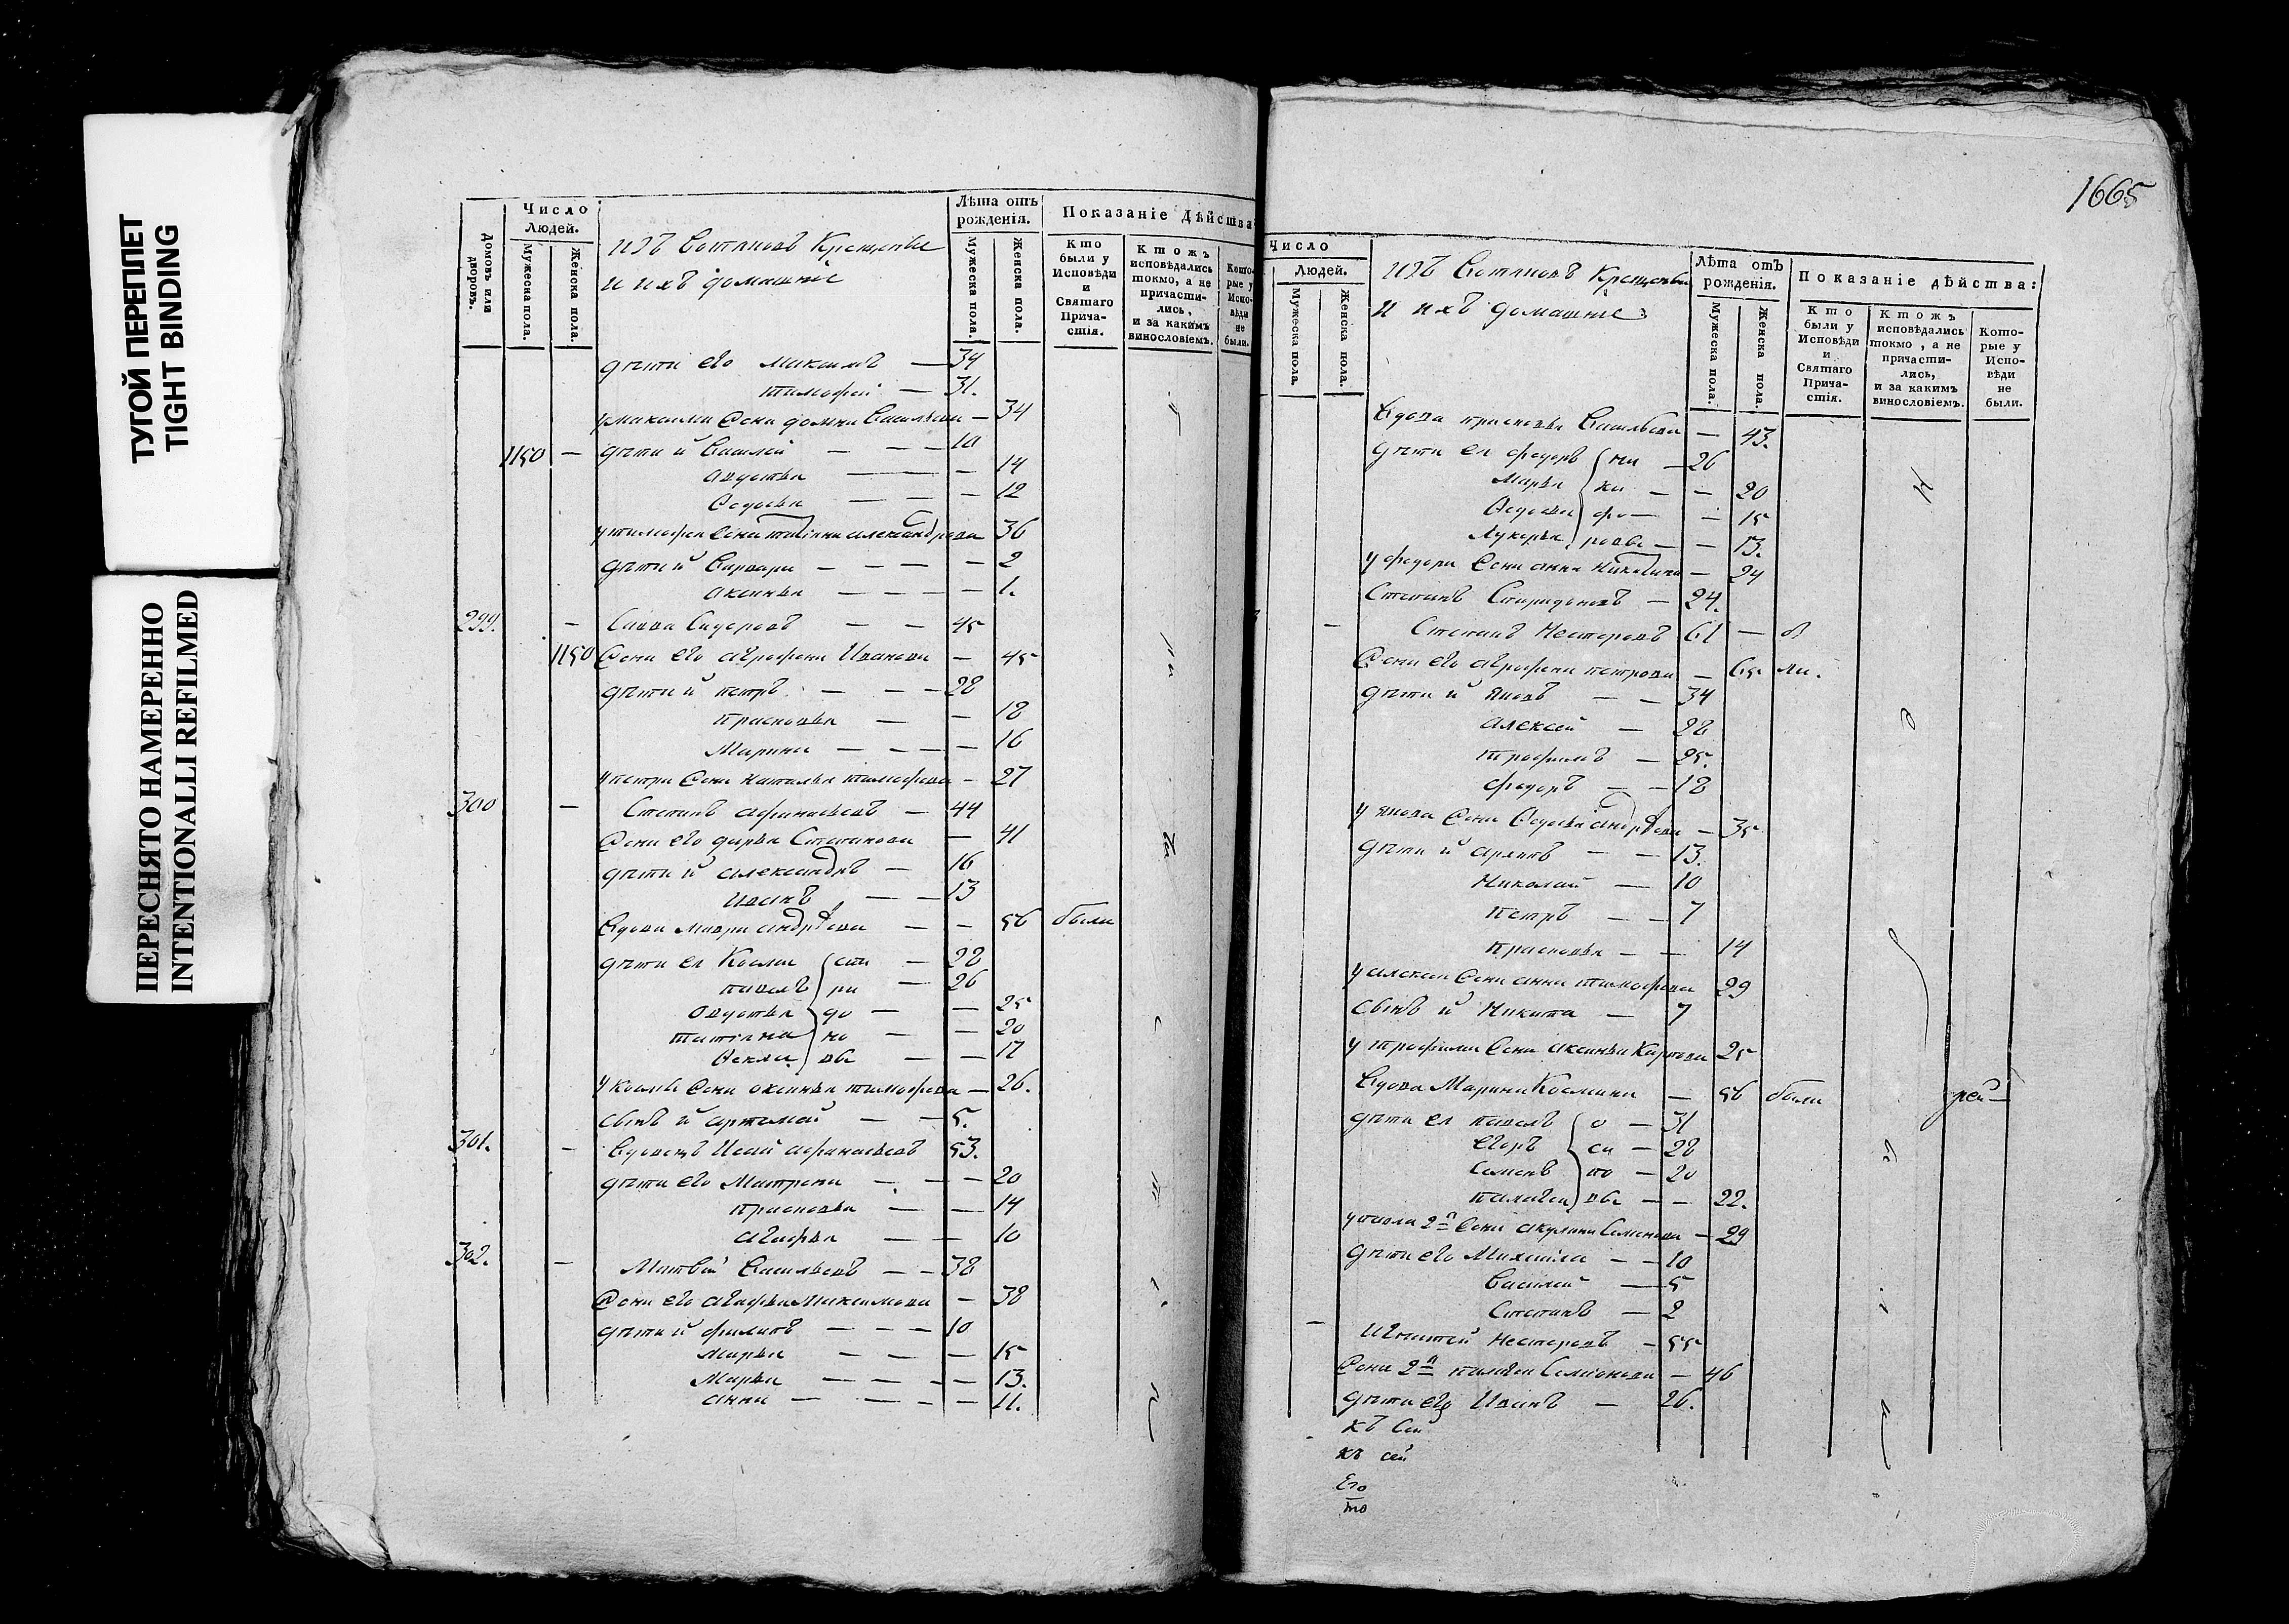 ТУГОЙ ПЕРЕПЛЕТ
TIGHT BINDING
ПЕРЕСНЯТО НАМЕРЕННО
INTENTIONALLI REFILMED
Домовъ или дворовъ.
Число Людей.
Мужеска пола.
Женска пола.
изъ Вотяковъ Крещеные
и ихъ домашніе
Лѣта отъ рожденія.
Мужеска пола.
Женска пола.
Показаніе дѣйства
Кто были у Исповѣди и Святаго Прича- стія.
Ктожъ исповѣдались токмо, а не причасти- лись, и за какимъ винословіемъ.
Кото- рые у Испо- вѣди не были.
дѣти его Максимъ — 34
тимофей — 31.
у максима жена домна Васильева — 34
1150 — дѣти й Василей — — — 10
авдотья — — — 14
Ѳедосья — — — 12
у тимофея жена татіяна александрова 36
дѣти й Варвара — — — — 2
аксинья — — — — 1.
299. — Савва Сидоровъ — — 45
1150 жена его агрофена Иванова — 45
дѣти й петръ — — — 28
прасковья — — 18
Марина — — — — 16
у петра жена наталья тимофеева — 27
300 — Степанъ афанасьевъ — 44
жена его дарья Степанова — 41
дѣти й александръ — 16
иванъ — — 13
Вдова мавра андреева — — 56 были
дѣти ея Косма — 28
павелъ — 26
авдотья — — 25
татіяна — — 20
Ѳекла — — 17
стародѣвство
у космы жена аксинья тимофеева — 26.
сынъ й артемей — — 5.
301. — Вдовецъ Исай афанасьевъ 53.
дѣти его Матрона — — — 20
прасковья — — 14
агафья — — 10
302. — Матвей Васильевъ — — 38
жена его агафья Максимова — 38
дѣти й филипъ — — — 10
марья — — — 15
марья — — — — 13.
анна — — — — 11.
1665
Число Людей.
Мужеска пола.
Женска пола.
изъ Вотяковъ Крещеные
и ихъ домашніе
Лѣта отъ рожденія.
Мужеска пола.
Женска пола.
Показаніе дѣйства:
Кто были у Исповѣди и Святаго Прича- стія.
Ктожъ исповѣдались токмо, а не причасти- лись, и за какимъ винословіемъ.
Кото- рые у Испо- вѣди не были.
Вдова прасковья Васильева — 43.
дѣти ея федоръ — 26
Марья — — 20
Ѳедосья — — 15
Лукерья — — 13.
у федора жена анна Никитина — 24
Степанъ Спиридоновъ — 24.
— Степанъ Нестеровъ 61 — б
жена его агрофена петрова — 65 ли.
дѣти й Яковъ — — 34
алексей — 28
трофимъ — 25.
федоръ — — 18
у якова жена Ѳедосья андреева — 35
дѣти й архипъ — — 13.
Николай — 10
петръ — — 7
прасковья — — 14
у алексея жена анна тимофеева 29
сынъ й Никита — 7
у трофима жена аксинья Карпова 25
Вдова Марина Космина — 56 были
дѣти ея павелъ — 31
егоръ — 28
Семенъ — 20
палагея — — 22.
у павла 2я жена акулина Семенова — 29
дѣти его Михаила — — 10
Василей — 5
Степанъ — 2
— Игнатей Нестеровъ — 55
жена 2я палагея Семіонова — 46
дѣти его Иванъ — 26.
къ сей
къ сей
Его
то